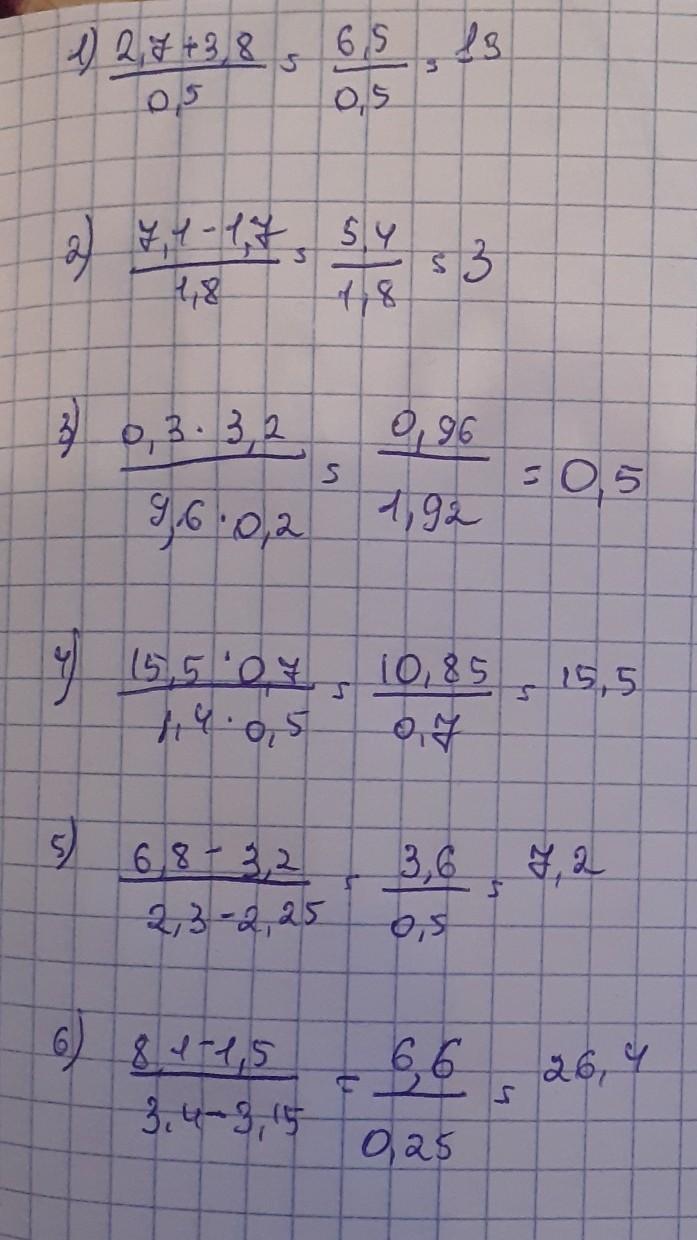 1) (2,7+3,8)/0,5 = 6,5/0,5 = 13
2) (7,1-1,7)/1,8 = 5,4/1,8 = 3
3) (0,3·3,2)/(9,6·0,2) = 0,96/1,92 = 0,5
4) (15,5·0,7)/(1,4·0,5) = 10,85/0,7 = 15,5
5) (6,8-3,2)/(2,3-2,25) = 3,6/0,5 = 7,2
6) (8,1-1,5)/(3,4-3,15) = 6,6/0,25 = 26,4